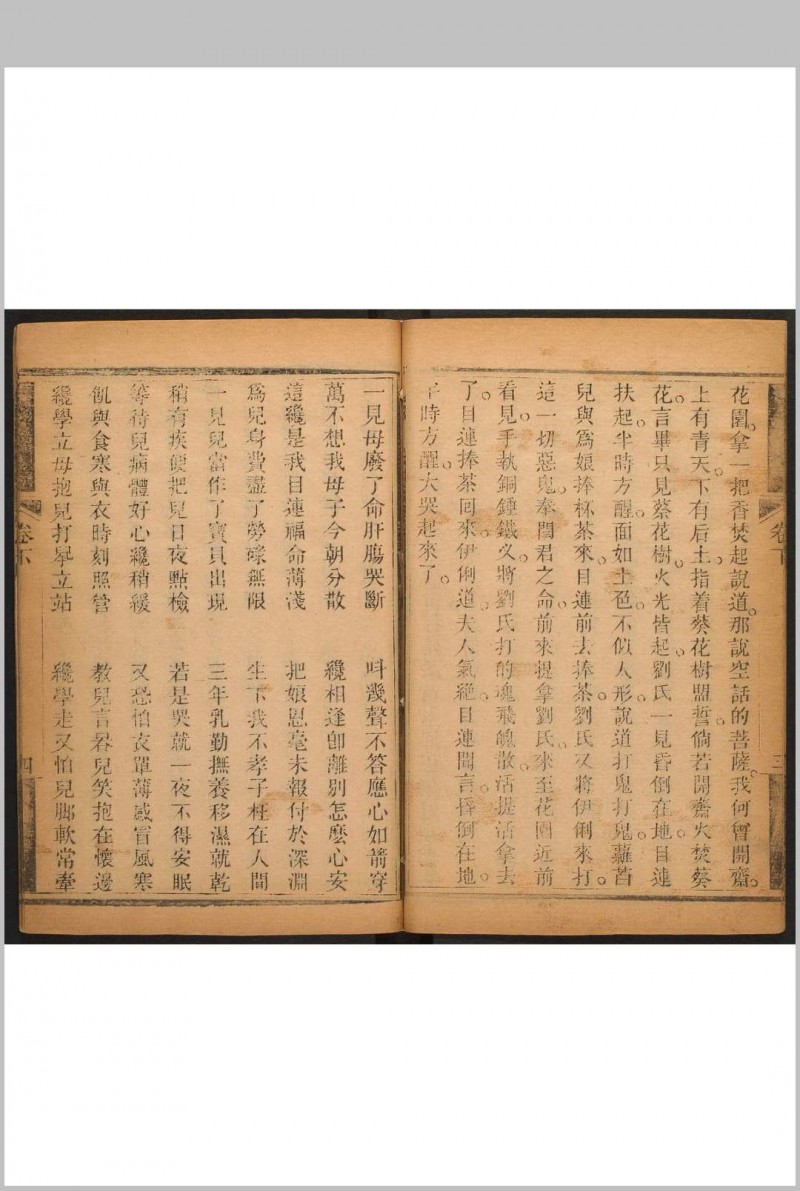 花園拿一把香焚起說道那說空話的菩薩我何曾開齋
上有青天下有后土指着葵花樹盟誓倘若開齋火焚葵
花言畢只見蔡花樹火光皆起劉氏一見昏倒在地目連
扶起半時方醒面如土色不似人形說道打鬼打鬼蘿苩
兒與爲娘捧杯茶來目連前去捧茶劉氏又將伊俐來打
這一切惡鬼奉閻君之命前來提拿劉氏來至花園近前
看見手執銅鍾鐵叉將劉氏打的魂飛魄散活提活拿去
了目連捧茶回來伊俐道夫人氣絶目連聞言昏倒在地
半時方醒大哭起來了
卷下
三
一見母廢了命肝腸哭斷 呌幾聲不答應心如箭穿
萬不想我母子今朝分散 纔相逢卽離別怎麼心安
這纔是我目連福命薄淺 把娘恩毫未報付於深淵
爲兒身費盡了勞碌無限 生下我不孝子枉在人間
一見兒當作了寶貝出現 三年乳勤撫養移濕就乾
稍有疾便把兒日夜點檢 若是哭就一夜不得安眠
等待兒病體好心纔稍緩 又恐怕衣單薄感冒風寒
飢與食寒與衣時刻照管 教兒言㖭兒笑抱在懷邊
纔學立母抱兒打拏立站 纔學走又怕兒脚軟常牽
卷下
四